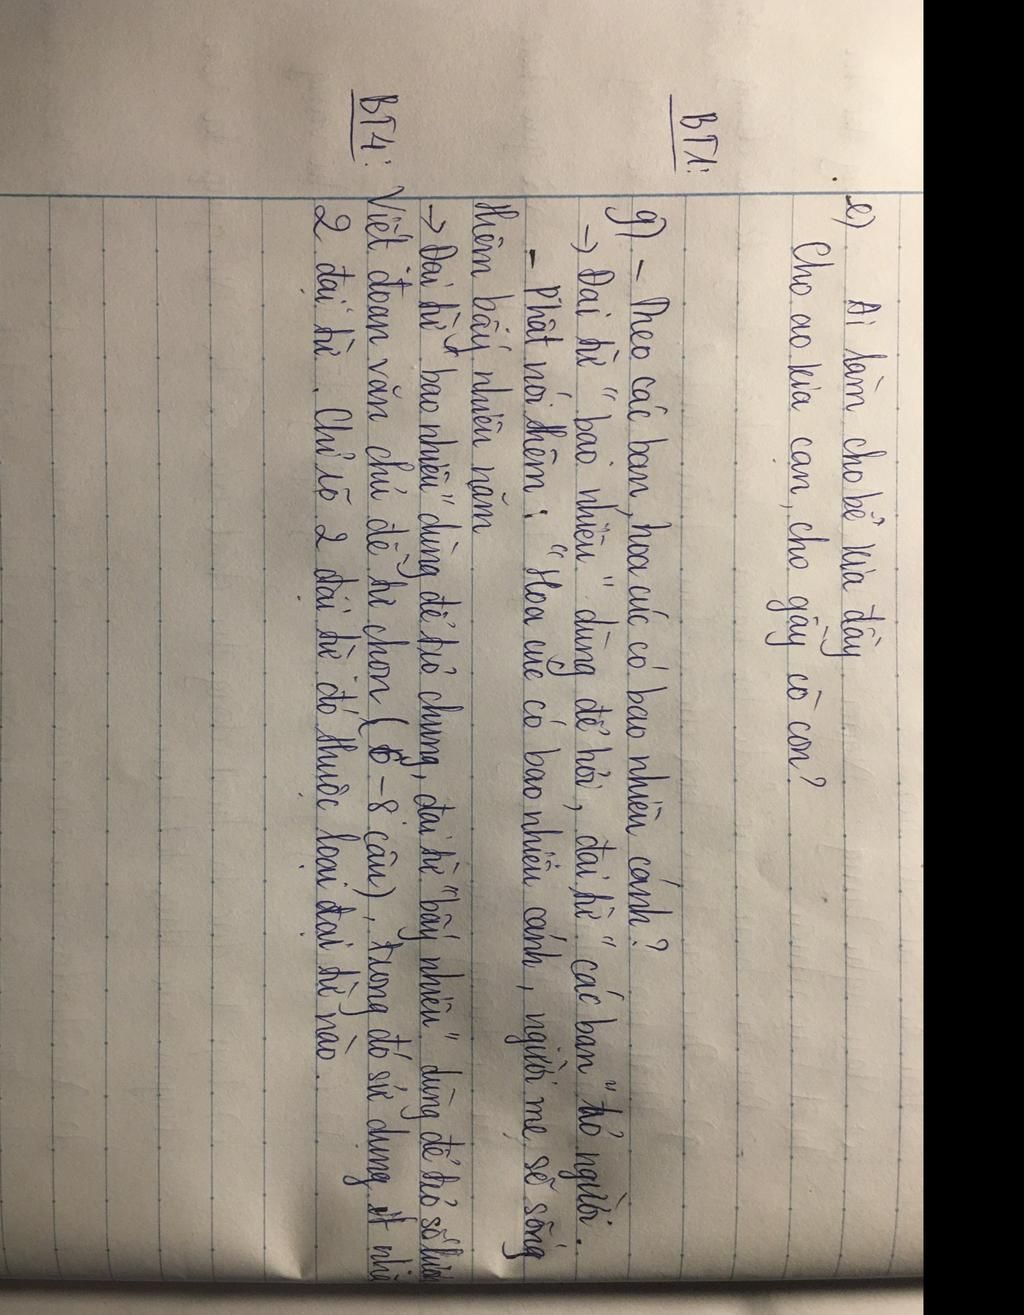 e) Ai làm cho bể kia đầy
Cho ao kia cạn, cho gầy cò con?
BT1:
g) - Theo các bạn, hoa cúc có bao nhiêu cánh?
→ Đại từ "bao nhiêu" dùng để hỏi, đại từ "các bạn" trỏ người.
- Phật nói thêm: "Hoa cúc có bao nhiêu cánh, người mẹ sẽ sống
thêm bấy nhiêu năm
→ Đại từ "bao nhiêu" dùng để trỏ chung, đại từ "bấy nhiêu" dùng để trỏ số
BT4: Viết đoạn văn chủ đề tự chọn (6-8 câu), trong đó sử dụng ít
2 đại từ. Chỉ rõ 2 đại từ đó thuộc loại đại từ nào.